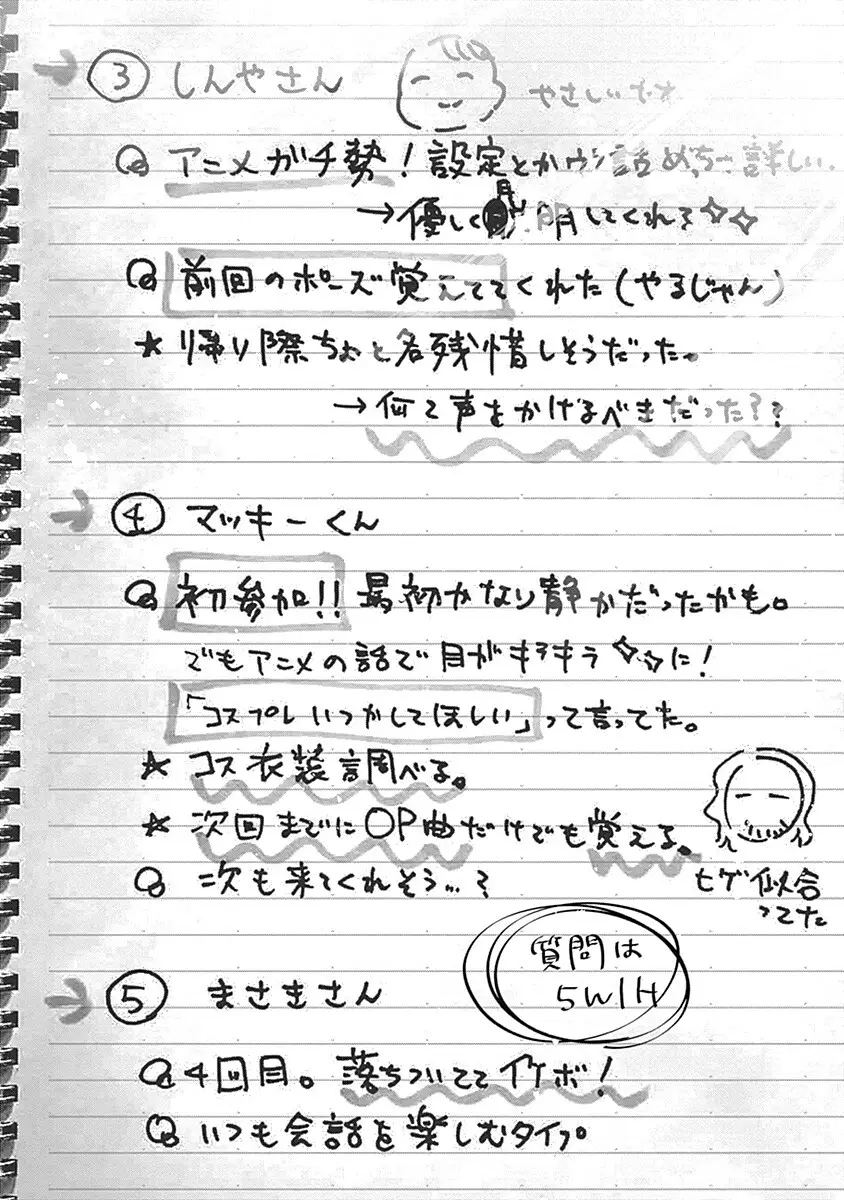 → ③ しんやさん
やさしいです
アニメガチ勢！設定とかウラ話めっちゃ詳しい。
→優しく説明してくれる
前回のポーズ覚えててくれた（やるじゃん）
★ 帰り際ちょっと名残惜しそうだった。
→何て声をかけるべきだった？？
→ ④ マッキーくん
初参加!! 最初かなり静かだったかも。
でもアニメの話で目がキラキラに！
「コスプレいつかしてほしい」って言ってた。
★ コス衣装調べる。
★ 次回までにOP曲だけでも覚える。
次も来てくれそう…？
ヒゲ似合
ってた
質問は
5W1H
→ ⑤ まさきさん
4回目。落ちついててイケボ！
いつも会話を楽しむタイプ。